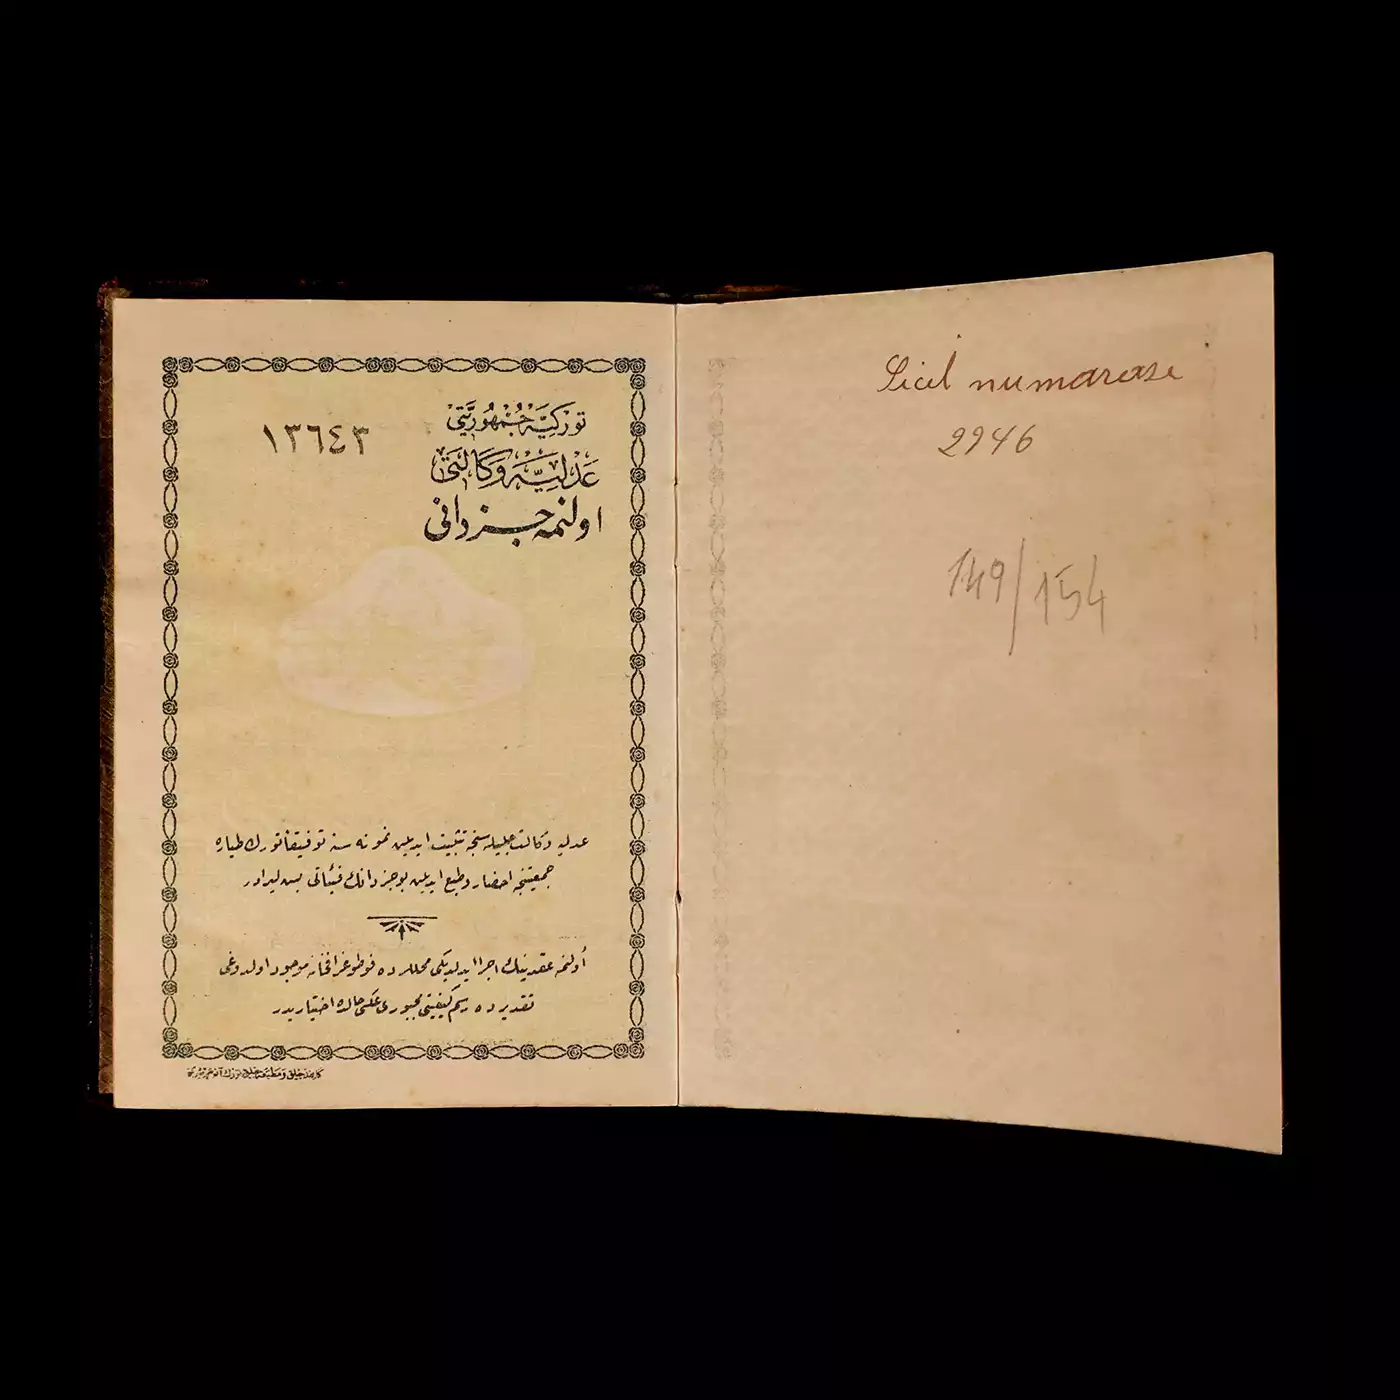 توركیه جمهوریتی
١٣٦٤٣
عدلیه وكالتی
اولنمه جزدانی
عدلیه وكالت جلیله سنجه تثبیت ایدیلن نمونه سنه توفیقاً تورك طیاره
جمعیتنجه احضار و طبع ایدیلن بو جزدانك فیئاتی بش لیرادر
أولنمه عقدینك اجرا ایدیلدیكی محللرده فوطوغرافخانه موجود اولدوغی
تقدیرده رسم كیفیتی مجبوری عكس حالده اختیاریدر
Sicil numarası
2946
149/154